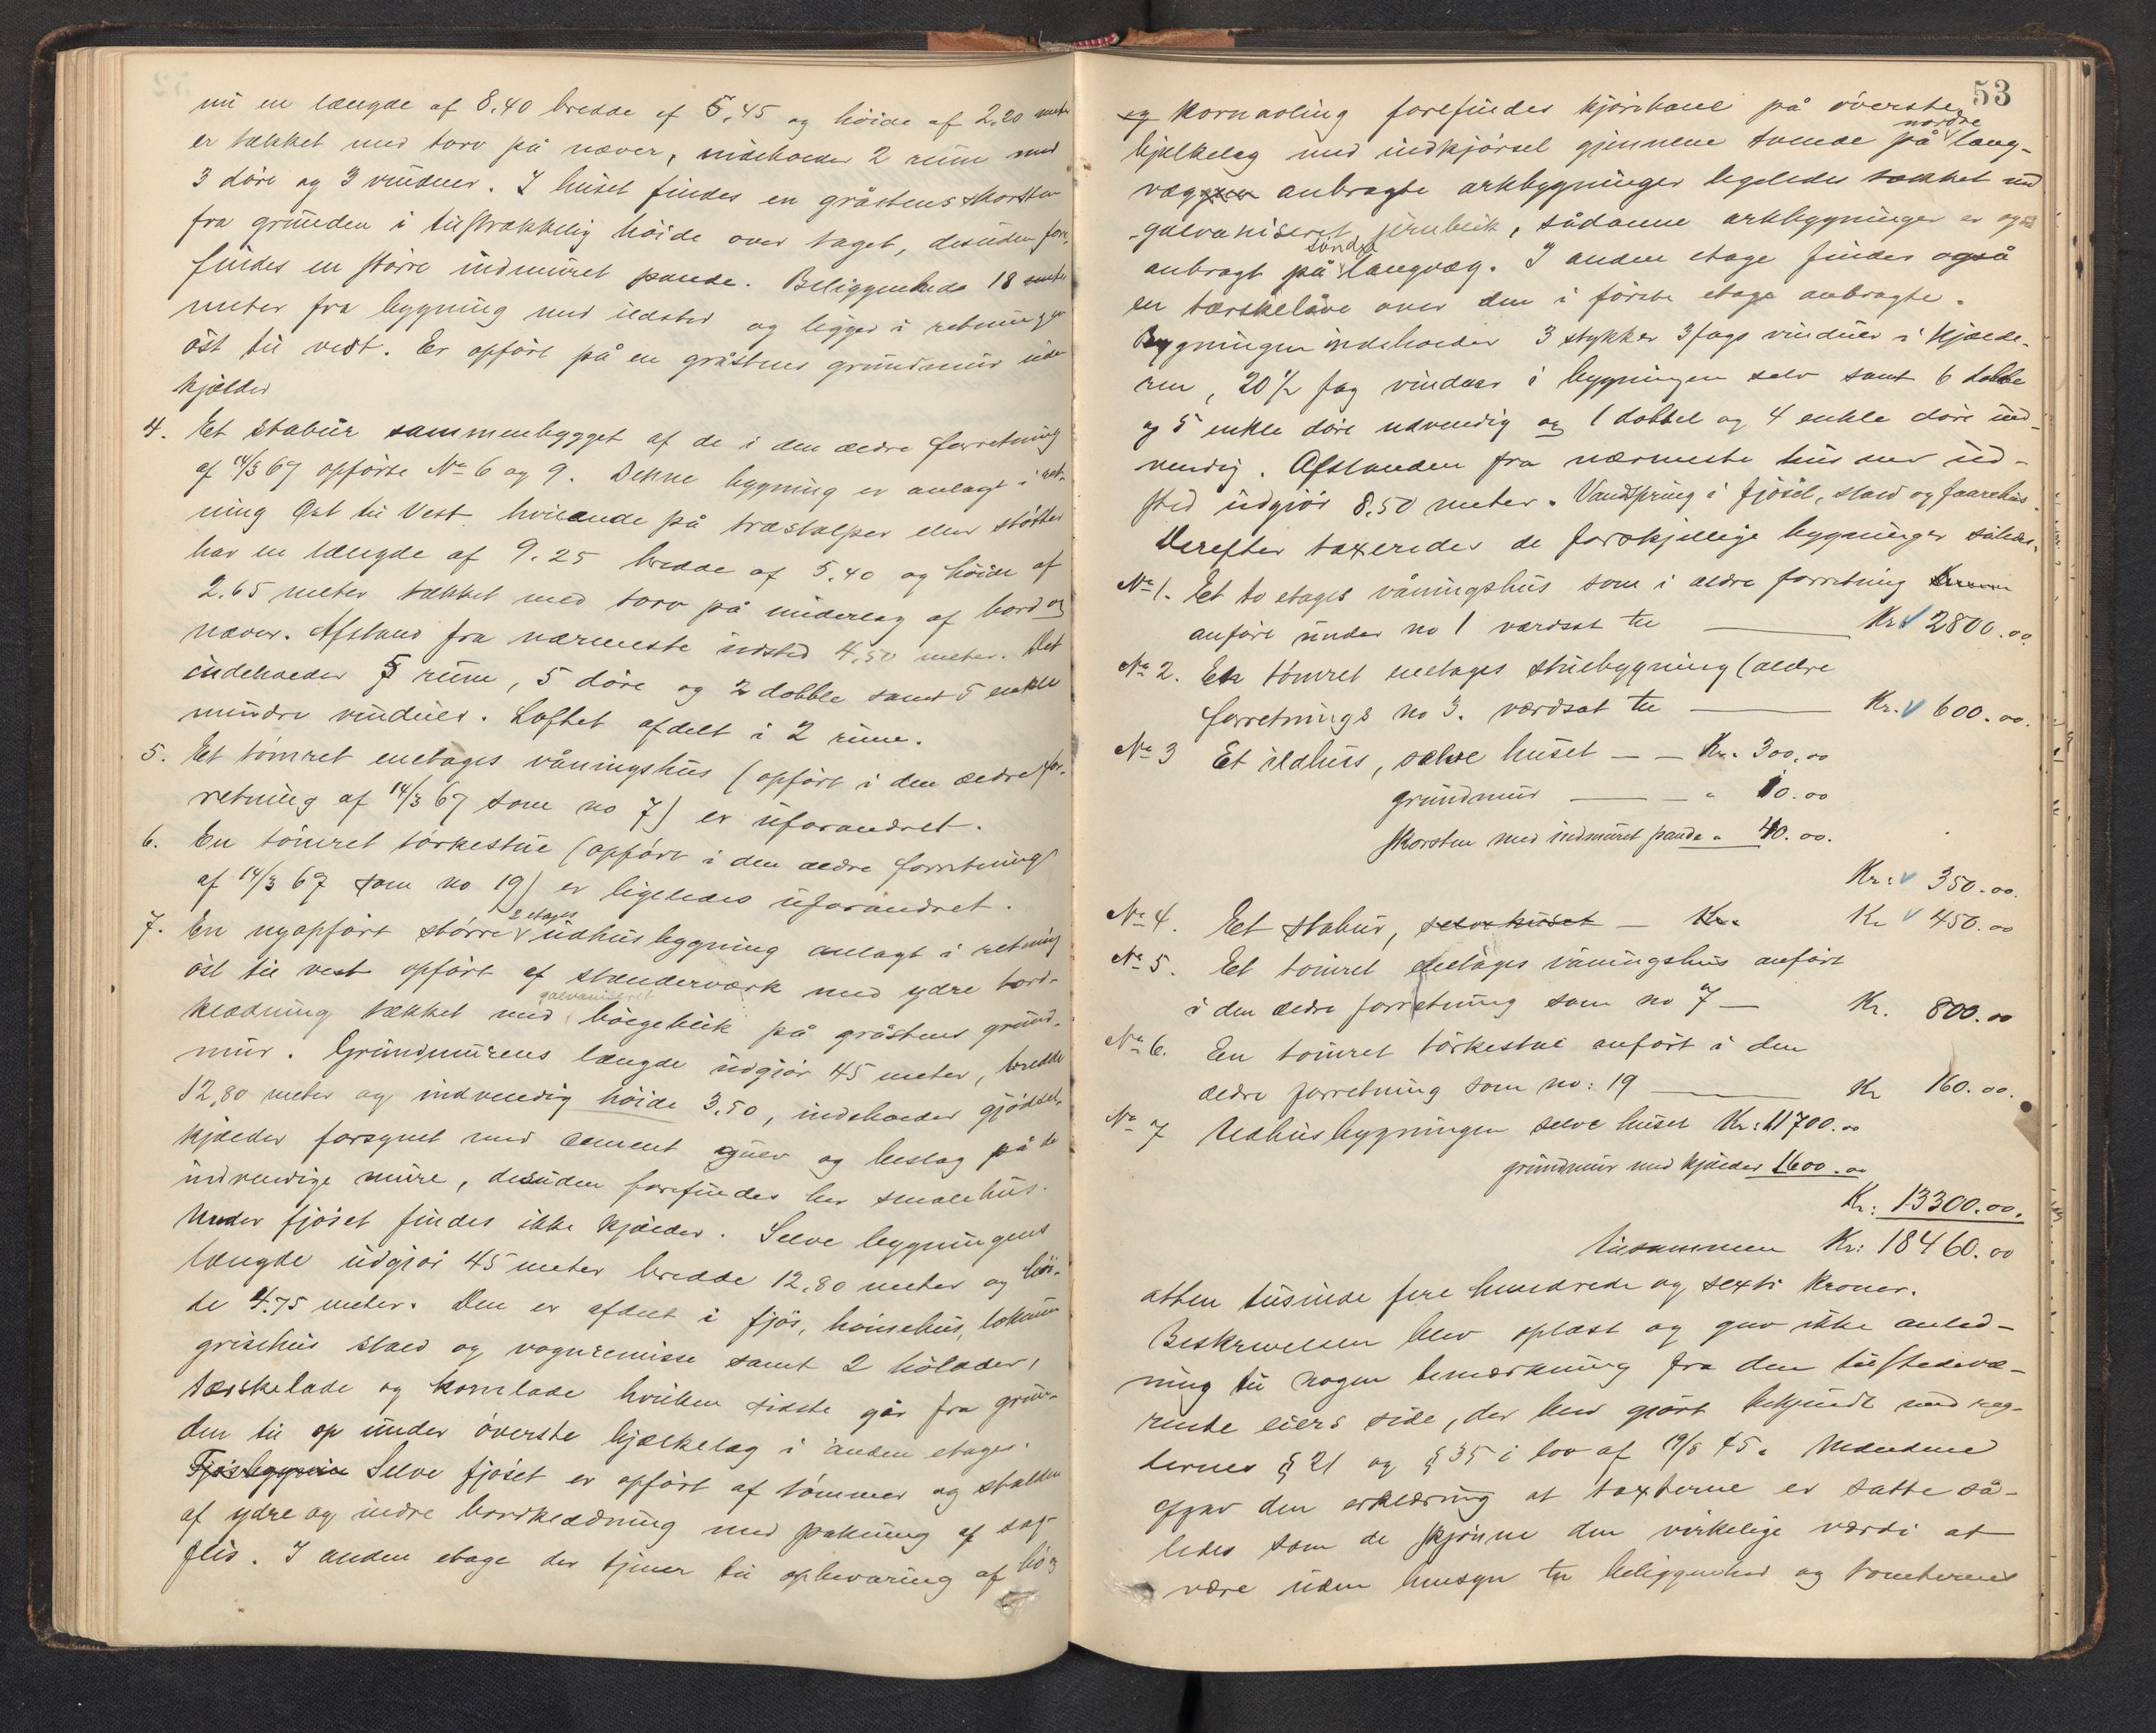 nu en længde af 8.40 bredde af 5.45 og høide af 2.20 meter
er tækket med torv på næver, indeholder 2 rum med
3 døre og 3 vinduer. I huset findes en gråstens skorsten
fra grunden i tilstrækkelig høide over taget, desuden fore-
findes en større indmuret pande. Beliggenheden 18
meter fra bygning med ildsted og ligger i retning
øst til vest. Er opført på en gråstens grundmur uden
kjælder
4. Et stabur sammenbygget af de i den ældre forretning
af 14/3 67 opførte No 6 og 9. Denne bygning er anlagt i ret-
ning Øst til Vest hvilende på træstolper eller støtter
har en længde af 9.25 bredde af 5.40 og høide af
2.65 meter tækket med torv på underlag af bord og
næver. Afstand fra nærmeste ildsted 4.50 meter. Det
indeholder 5 rum, 5 døre og 2 dobble samt 5 enkle
mindre vinduer. Loftet afdelt i 2 rum.
5. Et tømret enetages våningshus (opført i den ældre for-
retning af 14/3 67 som no 7) er uforandret.
6. En tømret tørkestue (opført i den ældre forretning
af 14/3 67 som no 19) er ligeledes uforandret.
7. En nyopført større 2 etages udhusbygning anlagt i retning
øst til vest opført af stænderværk med ydre bord-
klædning tækket med galvaniseret bølgeblik på gråstens grund-
mur. Grundmurens længde udgjør 45 meter, bredde
12,80 meter og indvendig høide 3,50, indeholder gjødsel-
kjælder forsynet med cement gulv og beslag på de
indvendige mure, desuden forefindes her smalehus.
Under fjøset findes ikke kjælder. Selve bygningens
længde udgjør 45 meter bredde 12,80 meter og høi-
de 4.75 meter. Den er afdelt i fjøs, hønsehus, lokum
grisehus stald og vognremisse samt 2 hølader,
tærskelade og kornlade hvilken sidste går fra grun-
den til op under øverste bjælkelag i anden etages.
Fjøsbygnin Selve fjøset er opført af tømmer og stalden
af ydre og indre bordklædning med pakning af sag-
flis. I anden etage der tjener til opbevaring af hø og
53
og kornavling forefindes kjørebane på øverste
bjelkelag med indkjørsel gjennem tvende på nordre lang-
væggen anbragte arkbygninger ligeledes tækket med
galvaniseret jernblik, sådanne arkbygninger er også
anbragt på søndre langvæg. I anden etage findes også
en tærskelåve over den i første etage anbragte.
Bygningen indeholder 3 stykker 3 fags vinduer i kjælde-
ren, 20 1/2 fag vinduer i bygningen selv samt 6 dobble
og 5 enkle døre udvendig og 1 dobbel og 4 enkle døre ind-
vendig. Afstanden fra nærmeste hus med ild-
sted udgjør 8.50 meter. Vandspring i fjøset, stald og faarehus.
Derefter taxeredes de forskjellige bygninger således.
No 1. Et to etages våningshus som i ældre forretning
anført under no 1 værdsat til Kr. 2800.00
No 2. En tømret enetages stuebygning (ældre
forretnings no 3. værdsat til Kr. 600.00.
No 3 Et ildhus, selve huset — — Kr. 300.00
grundmur — — " 10.00
skorsten med indmuret pande " 40.00.
Kr: 350.00.
No 4. Et stabur, selve huset — Kr. Kr 450.00
No 5. Et tømret enetages våningshus anført
i den ældre forretning som no 7 — Kr. 800.00
No 6. En tømret tørkestue anført i den
ældre forretning som no: 19 Kr 160.00.
No 7 Udhusbygningen selve huset Kr: 11700.00
grundmur med kjælder 1600.00
Kr: 13300.00.
tilsammen Kr: 18460.00
atten tusinde fire hundrede og sexti Kroner.
Beskrivelsen blev oplæst og gav ikke anled-
ning til nogen bemærkning fra den tilstedevæ-
rende eiers side, der blev gjort bekjendt med reg-
lernes § 21 og § 35 i lov af 19/8 45. Mændene
afgav den erklæring at taxterne er satte så-
ledes som de skjønne den virkelige værdi at
være uden hensyn til beliggenhed og tomternes